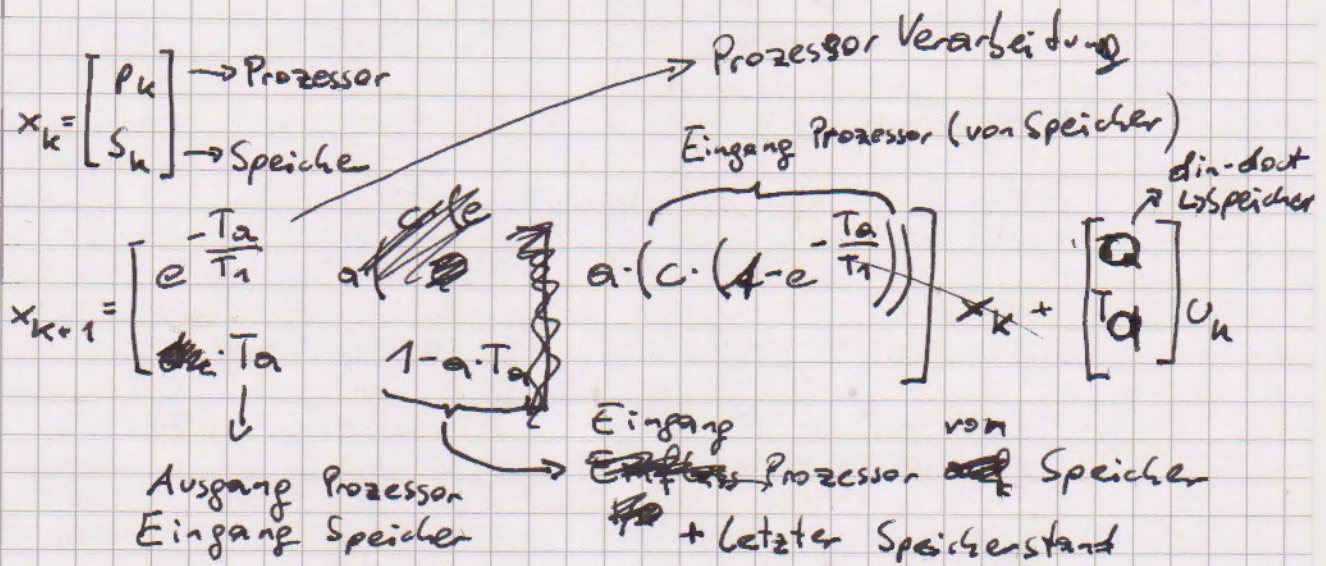 Prozessor Verarbeitung
x_k = [ P_k → Prozessor
S_k ] → Speicher
Eingang Prozessor (von Speicher)
din-dout
↳ Speicher
x_{k+1} = [ e^{-Ta/T1} a·(c·(1-e^{-Ta/T1})) ] x_k + [ 0
·Ta 1-a·Ta Ta ] u_k
Ausgang Prozessor
Eingang Speicher
Eingang Prozessor von Speicher
+ Letzter Speicherstand